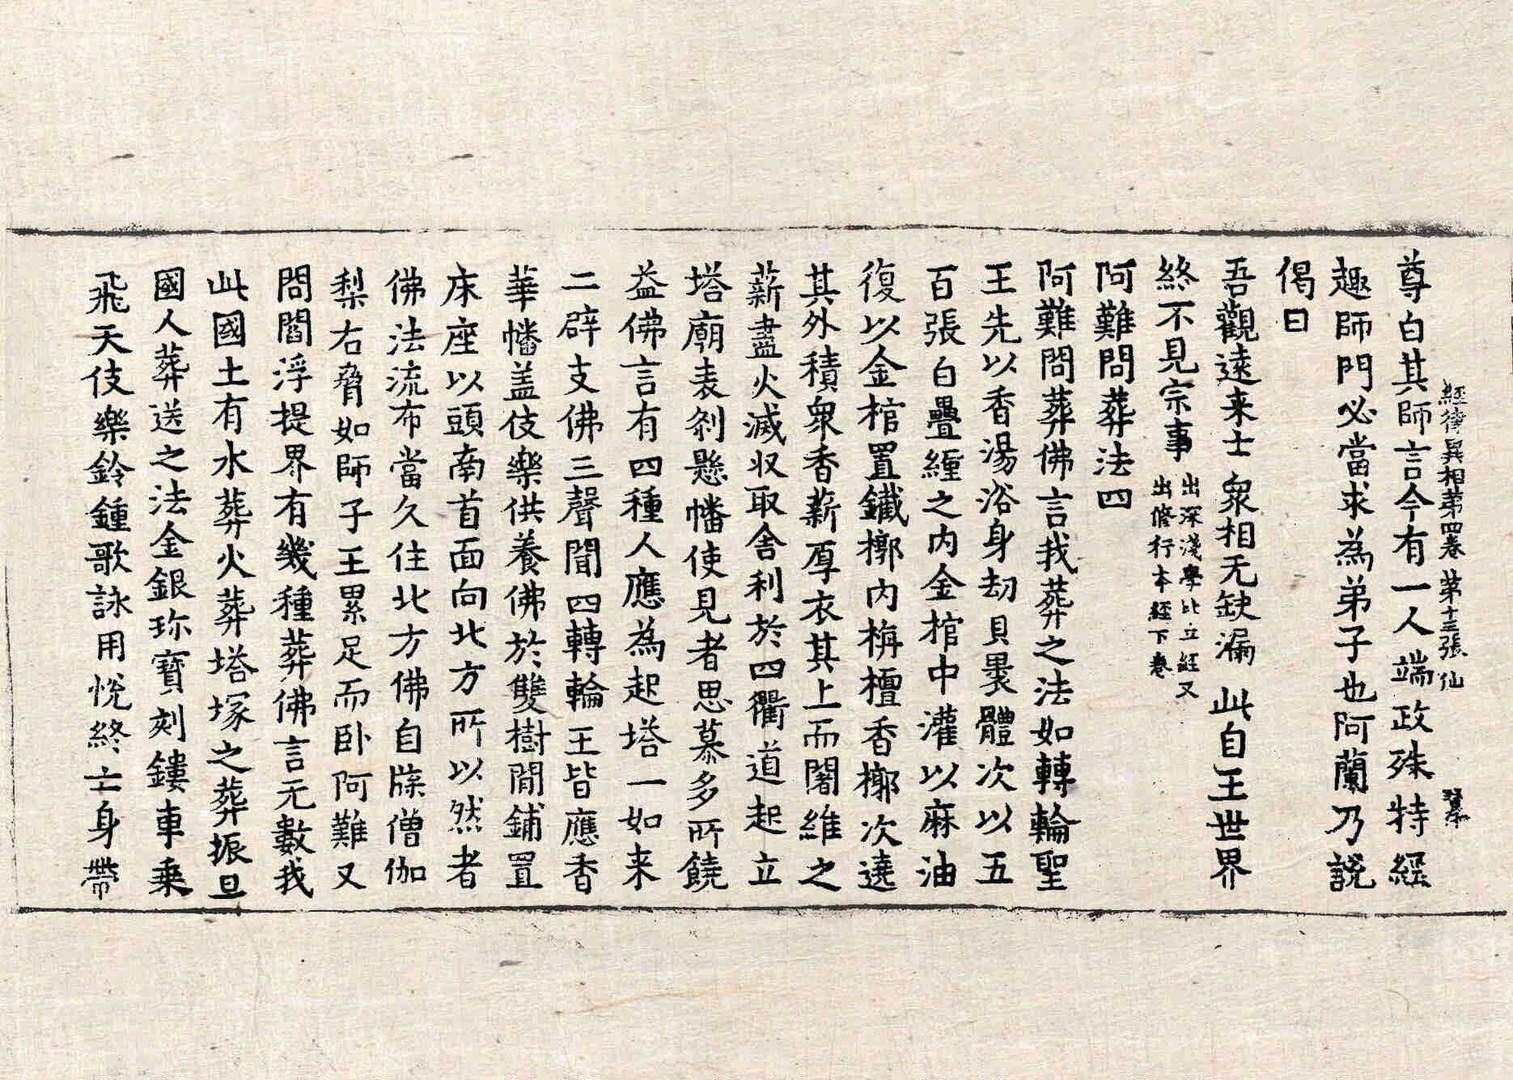 經律異相苐四卷 苐十三張 仙
尊白其師言今有一人端政殊特經
趣師門必當求為弟子也阿蘭乃說
偈曰
吾觀遠来士 衆相无缺漏 此自王世界
終不見宗事 出深淺學比丘經又出脩行本經下卷
阿難問葬法四
阿難問葬佛言我葬之法如轉輪聖
王先以香湯浴身劫貝裹體次以五
百張白疊纏之内金棺中灌以麻油
復以金棺置鐵槨内栴檀香槨次遶
其外積衆香薪厚衣其上而闍維之
薪盡火滅収取舍利於四衢道起立
塔廟表剎懸幡使見者思慕多所饒
益佛言有四種人應為起塔一如来
二辟支佛三聲聞四轉輪王皆應香
華幡盖伎樂供養佛於雙樹閒鋪置
床座以頭南首面向北方所以然者
佛法流布當久住北方佛自牒僧伽
梨右脅如師子王累足而卧阿難又
問閻浮提界有幾種葬佛言无數我
此國土有水葬火葬塔塚之葬振旦
國人葬送之法金銀珎寶刻鏤車乗
飛天伎樂鈴鍾歌詠用悅終亡身帶